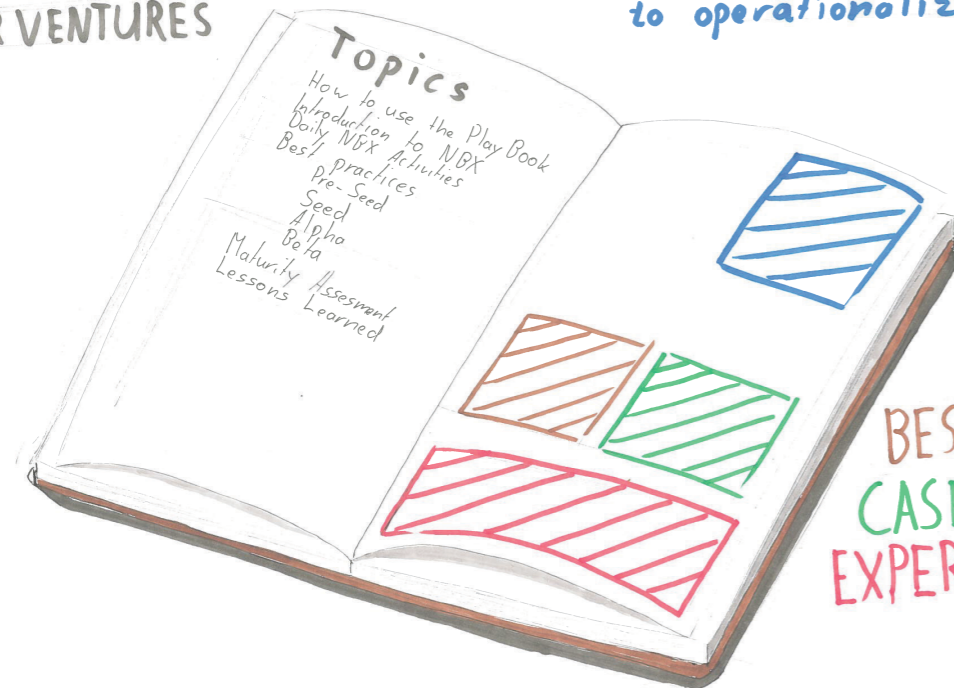 R VENTURES
to operationaliz
Topics
How to use the PlayBook
Introduction to NBX
Daily NBX Activities
Best practices
Pre-Seed
Seed
Alpha
Beta
Maturity Assesment
Lessons Learned
BES
CASE
EXPER